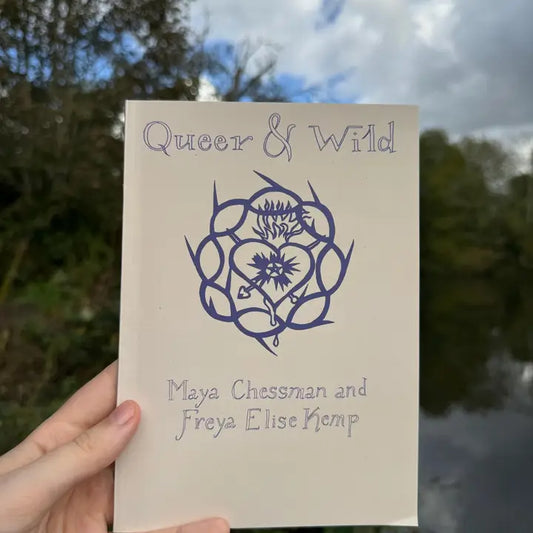 Queer & Wild
Maya Chessman and
Freya Elise Kemp